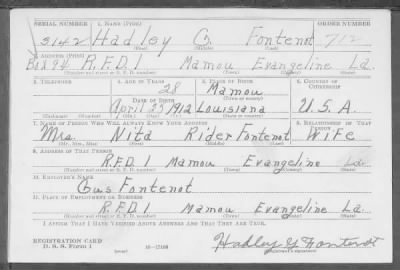 SERIAL NUMBER 1. NAME (Print) ORDER NUMBER
3142 Hadley G Fontenot 712
(First) (Middle) (Last)
2. ADDRESS (Print)
Box 84 R.F.D.1 Mamou Evangeline La.
(Number and street or R. F. D. number) (Town) (County) (State)
3. TELEPHONE 4. AGE IN YEARS 5. PLACE OF BIRTH 6. COUNTRY OF CITIZENSHIP
28 Mamou
(Town or county)
DATE OF BIRTH
April 25 1912 Louisiana U.S.A.
(Mo.) (Day) (Yr.) (State or country)
7. NAME OF PERSON WHO WILL ALWAYS KNOW YOUR ADDRESS 8. RELATIONSHIP OF THAT PERSON
Mrs. Nita Rider Fontenot Wife
(Mr., Mrs., Miss) (First) (Middle) (Last)
9. ADDRESS OF THAT PERSON
R.F.D.1 Mamou Evangeline La.
(Number and street or R. F. D. number) (Town) (County) (State)
10. EMPLOYER'S NAME
Gus Fontenot
11. PLACE OF EMPLOYMENT OR BUSINESS
R.F.D.1 Mamou Evangeline La.
(Number and street or R. F. D. number) (Town) (County) (State)
I AFFIRM THAT I HAVE VERIFIED ABOVE ANSWERS AND THAT THEY ARE TRUE.
REGISTRATION CARD
D. S. S. Form 1 (over) 16-17105
Hadley G Fontenot
(Registrant's signature)